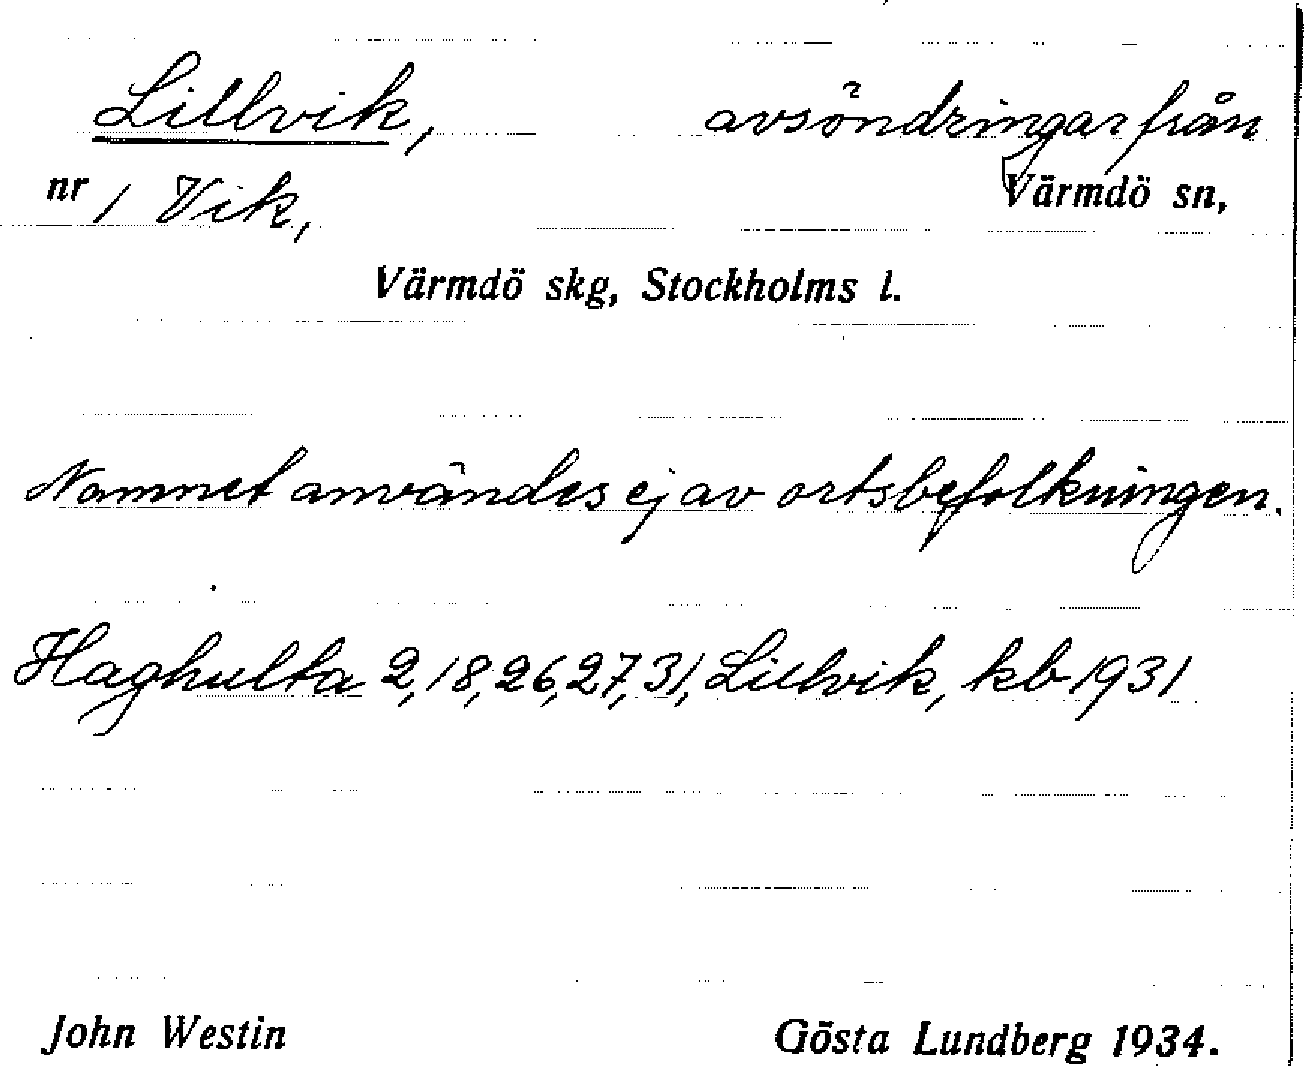 Lillvik, avsöndringar från
nr 1 Vik, Värmdö sn,
Värmdö skg, Stockholms l.
Namnet användes ej av ortsbefolkningen.
Haghulta 2, 18, 26, 27, 31, Lillvik, kb 1931
John Westin Gösta Lundberg 1934.